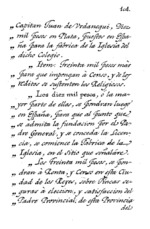 Capitan Juan de Vedanequi, Diez
„ mil pesos en Plata, puestos en Espa
„ ña para la fabrica de la Iglesia del
„ dicho Colegio.
„ Item: Treinta mil pesos mas
„ para que impongan à Censo, y de los
„ Reditos se sustenten los Religiosos.
„ Los diez mil pesos, ò la ma
„ yor parte de ellos, se pondran luego
„ en España, para que al punto que
„ se admita la fundacion por el Pa
„ dre General, y se conceda la licen
„ cia, se comience la Fabrica de la
„ Iglesia, en el Sitio que señalare.
„ Los treinta mil pesos, se pon
„ dran à Renta, y Censo en esta Ciu
„ dad de los Reyes, sobre Fincas se
„ guras à eleccion, y satisfaccion del
„ Padre Provincial, de esta Provincia
del